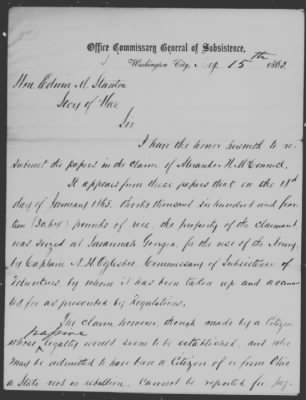 Office Commissary General of Subsistence,
Washington City, 15th 186
Hon. Edwin M. Stanton
Secy of War
Sir
I have the honor herewith to re-
submit the papers in the claim of Alexander H. McConnell.
It appears from these papers that on the 18th
day of January 1865. thirty thousand six hundred and four-
teen (30.614) pounds of rice, the property of the claimant,
was seized at Savannah Georgia, for the use of the Army,
by Captain A. H. Oglesbee Commissary of Subsistence of
Volunteers, by whom it has been taken up and accoun-
ted for as presented by Regulations.
The claim however, though made by a Citizen
whose legality would seem to be established, and who
must be admitted to have been a Citizen of or from Ohio
a State not in rebellion, cannot be reported for pay-